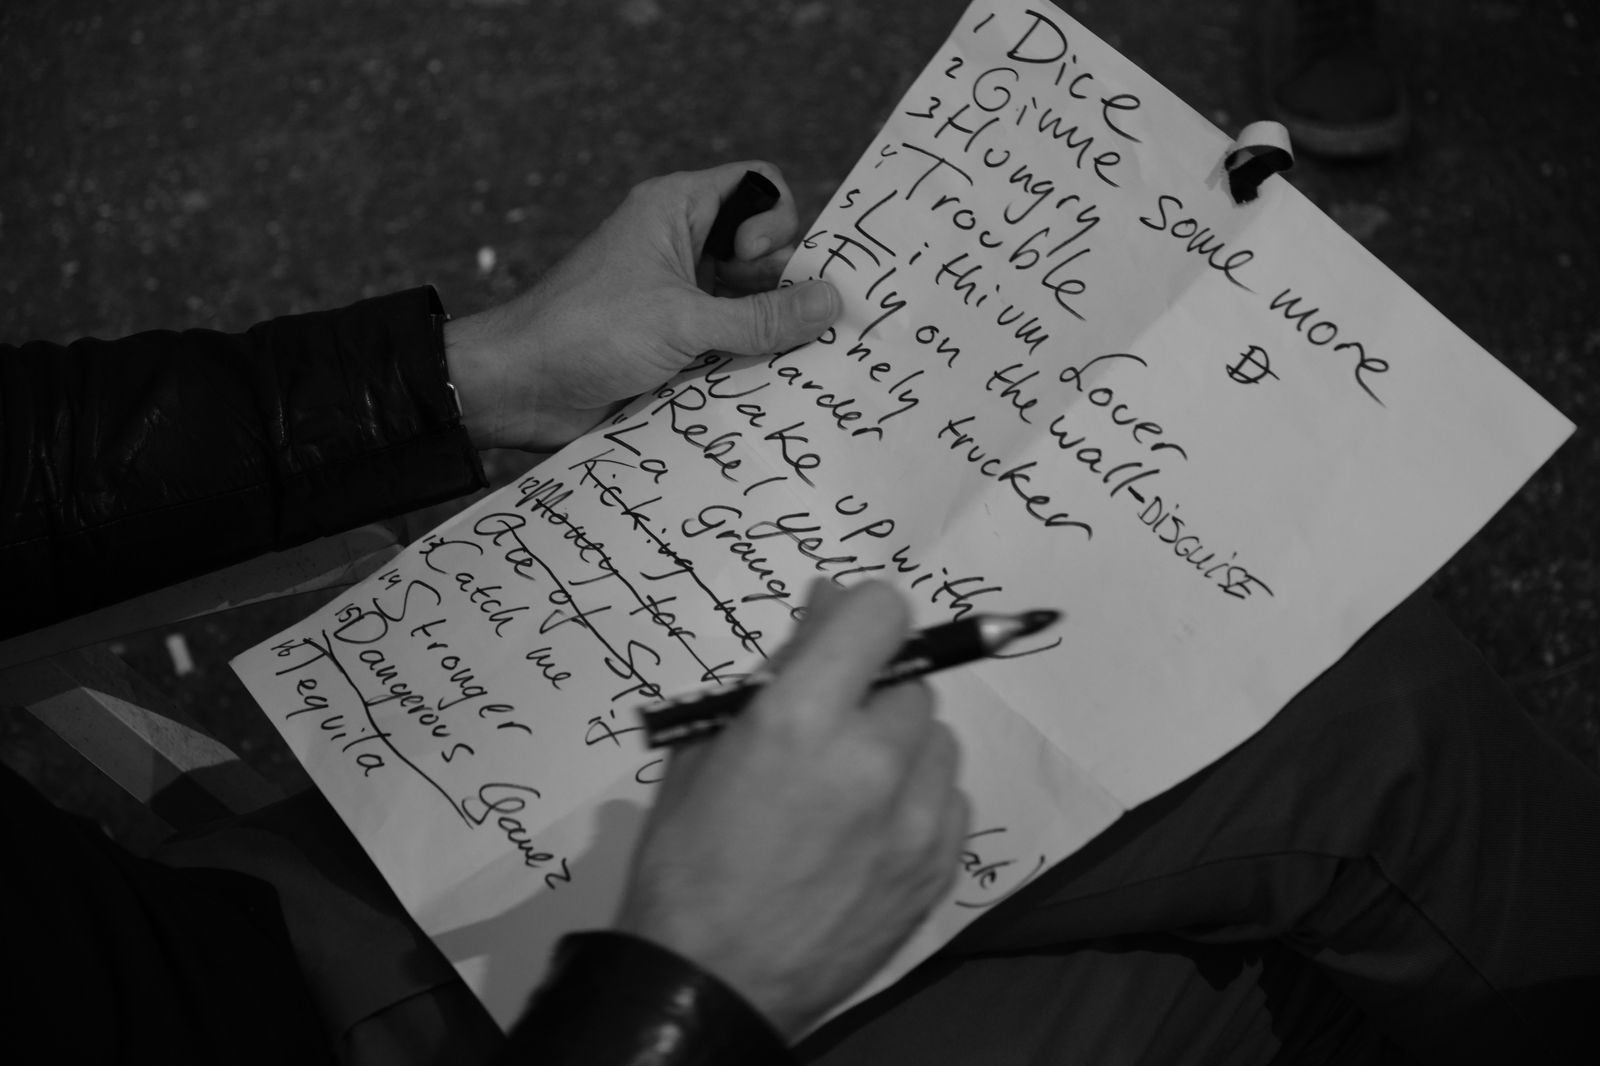 1 Dice
2 Gimme some more
3 Hungry
4. Trouble
5 Lithium Lover
6 Fly on the wall-DISGUISE
onely trucker
Harder
9 Wake up with
10 Rebel Yell
11 La Grange
Kicking me
12 Money for
Ace of Sp
13 Catch me if U
14 Stronger
15 Dangerous Game?
16 Tequila